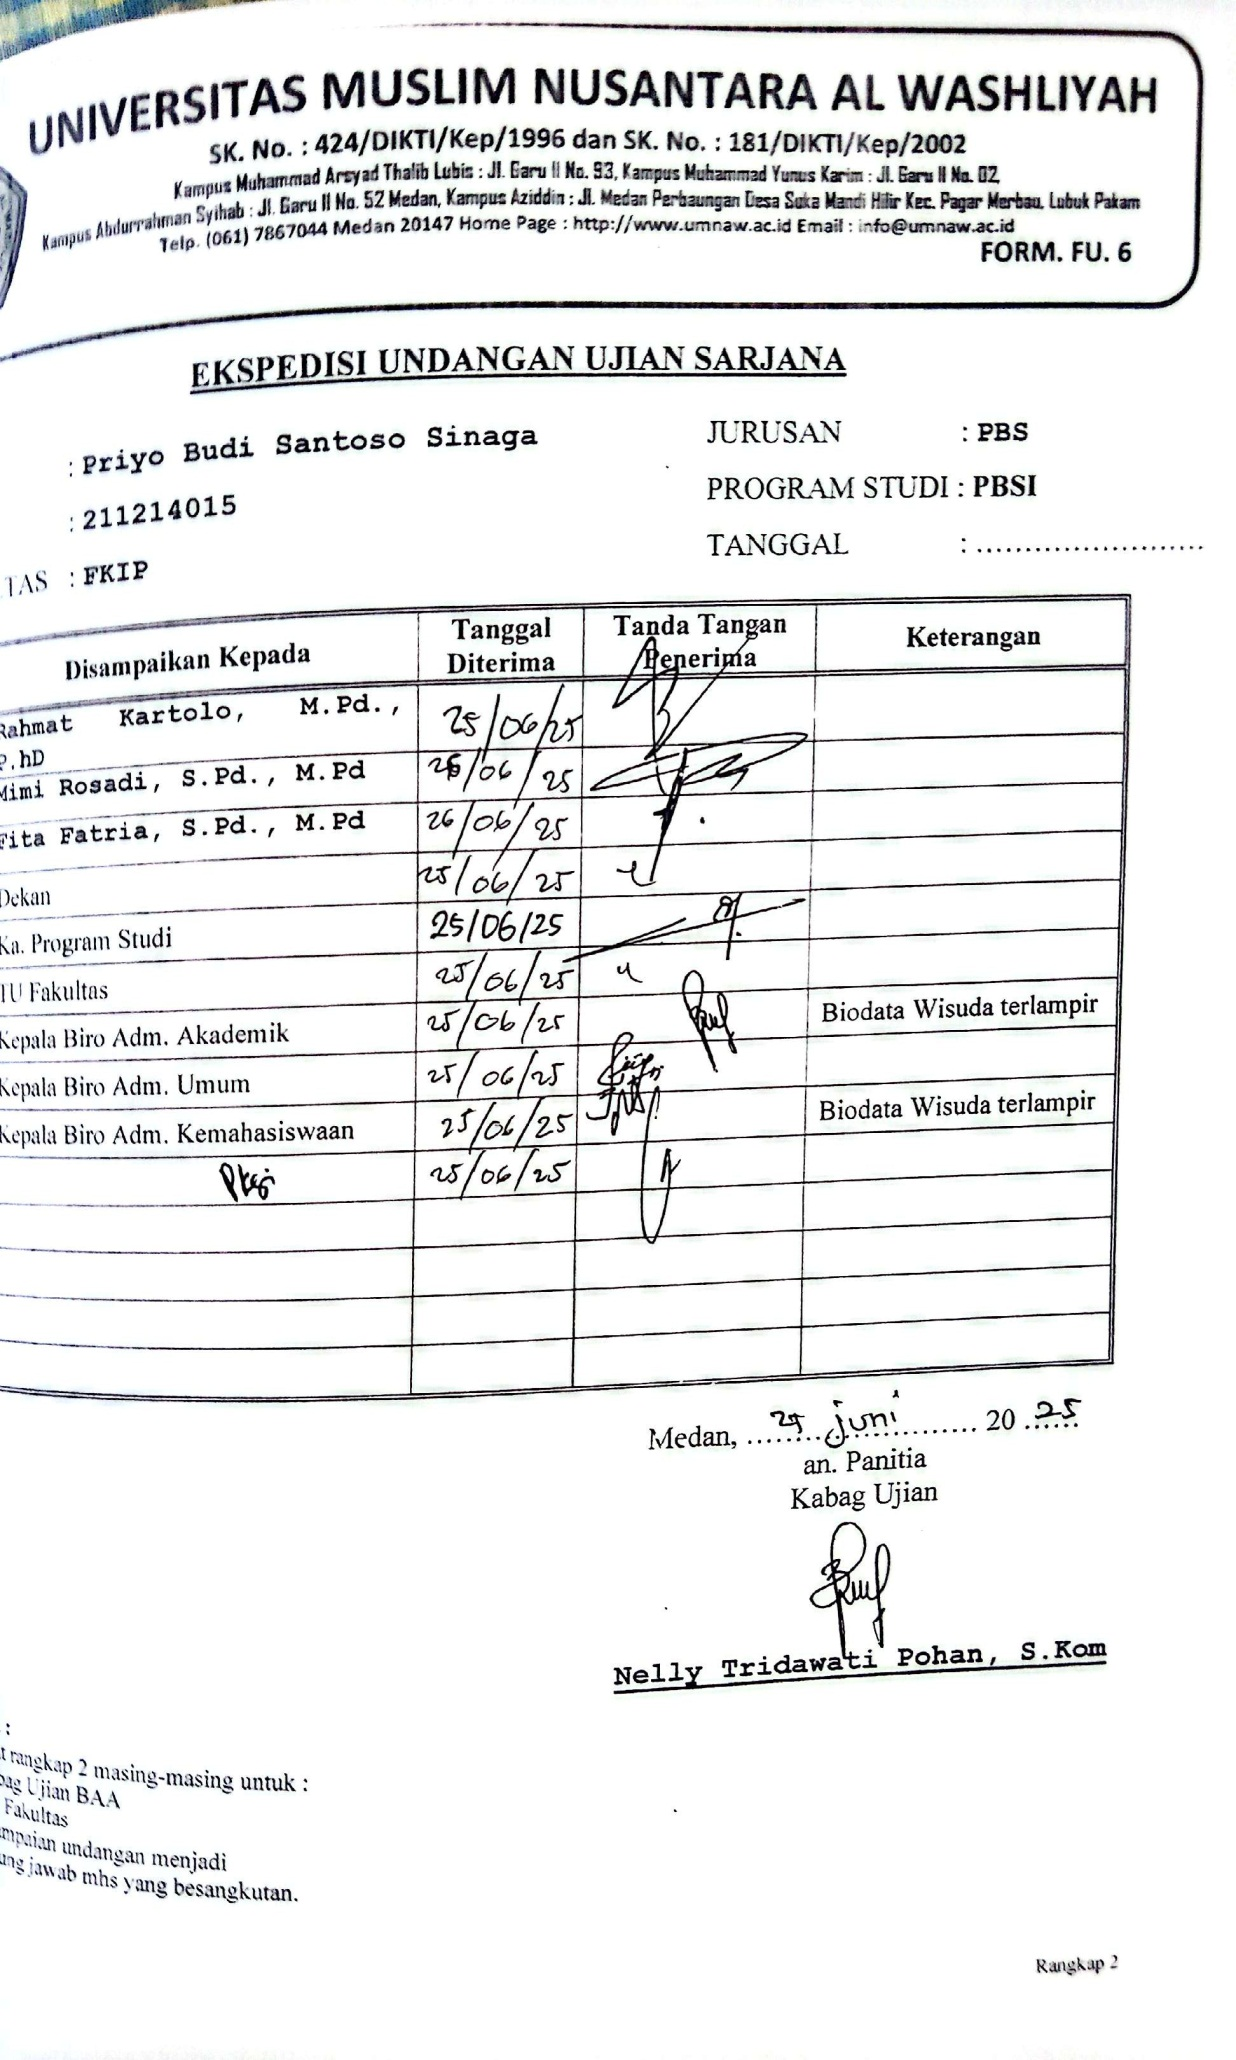 UNIVERSITAS MUSLIM NUSANTARA AL WASHLIYAH
SK. No. : 424/DIKTI/Kep/1996 dan SK. No. : 181/DIKTI/Kep/2002
Kampus Muhammad Arsyad Thalib Lubis : Jl. Garu II No. 93, Kampus Muhammad Yunus Karim : Jl. Garu II No. 02,
Kampus Abdurrahman Syihab : Jl. Garu II No. 52 Medan, Kampus Aziddin : Jl. Medan Perbaungan Desa Suka Mandi Hilir Kec. Pagar Merbau, Lubuk Pakam
Telp. (061) 7867044 Medan 20147 Home Page : http://www.umnaw.ac.id Email : info@umnaw.ac.id
FORM. FU. 6
EKSPEDISI UNDANGAN UJIAN SARJANA
: Priyo Budi Santoso Sinaga JURUSAN : PBS
: 211214015 PROGRAM STUDI : PBSI
TAS : FKIP TANGGAL : ........................
Disampaikan Kepada Tanggal Diterima Tanda Tangan Penerima Keterangan
Rahmat Kartolo, M.Pd., 25/06/25
P.hD
Mimi Rosadi, S.Pd., M.Pd 06/25
Fita Fatria, S.Pd., M.Pd 26/06/25
Dekan 25/06/25
Ka. Program Studi 25/06/25
TU Fakultas 25/06/25
Kepala Biro Adm. Akademik 25/06/25 Biodata Wisuda terlampir
Kepala Biro Adm. Umum 25/06/25
Kepala Biro Adm. Kemahasiswaan 25/06/25 Biodata Wisuda terlampir
25/06/25
Medan, juni 20 25
an. Panitia
Kabag Ujian
Nelly Tridawati Pohan, S.Kom
:
t rangkap 2 masing-masing untuk :
bag Ujian BAA
Fakultas
mpaian undangan menjadi
ung jawab mhs yang besangkutan.
Rangkap 2